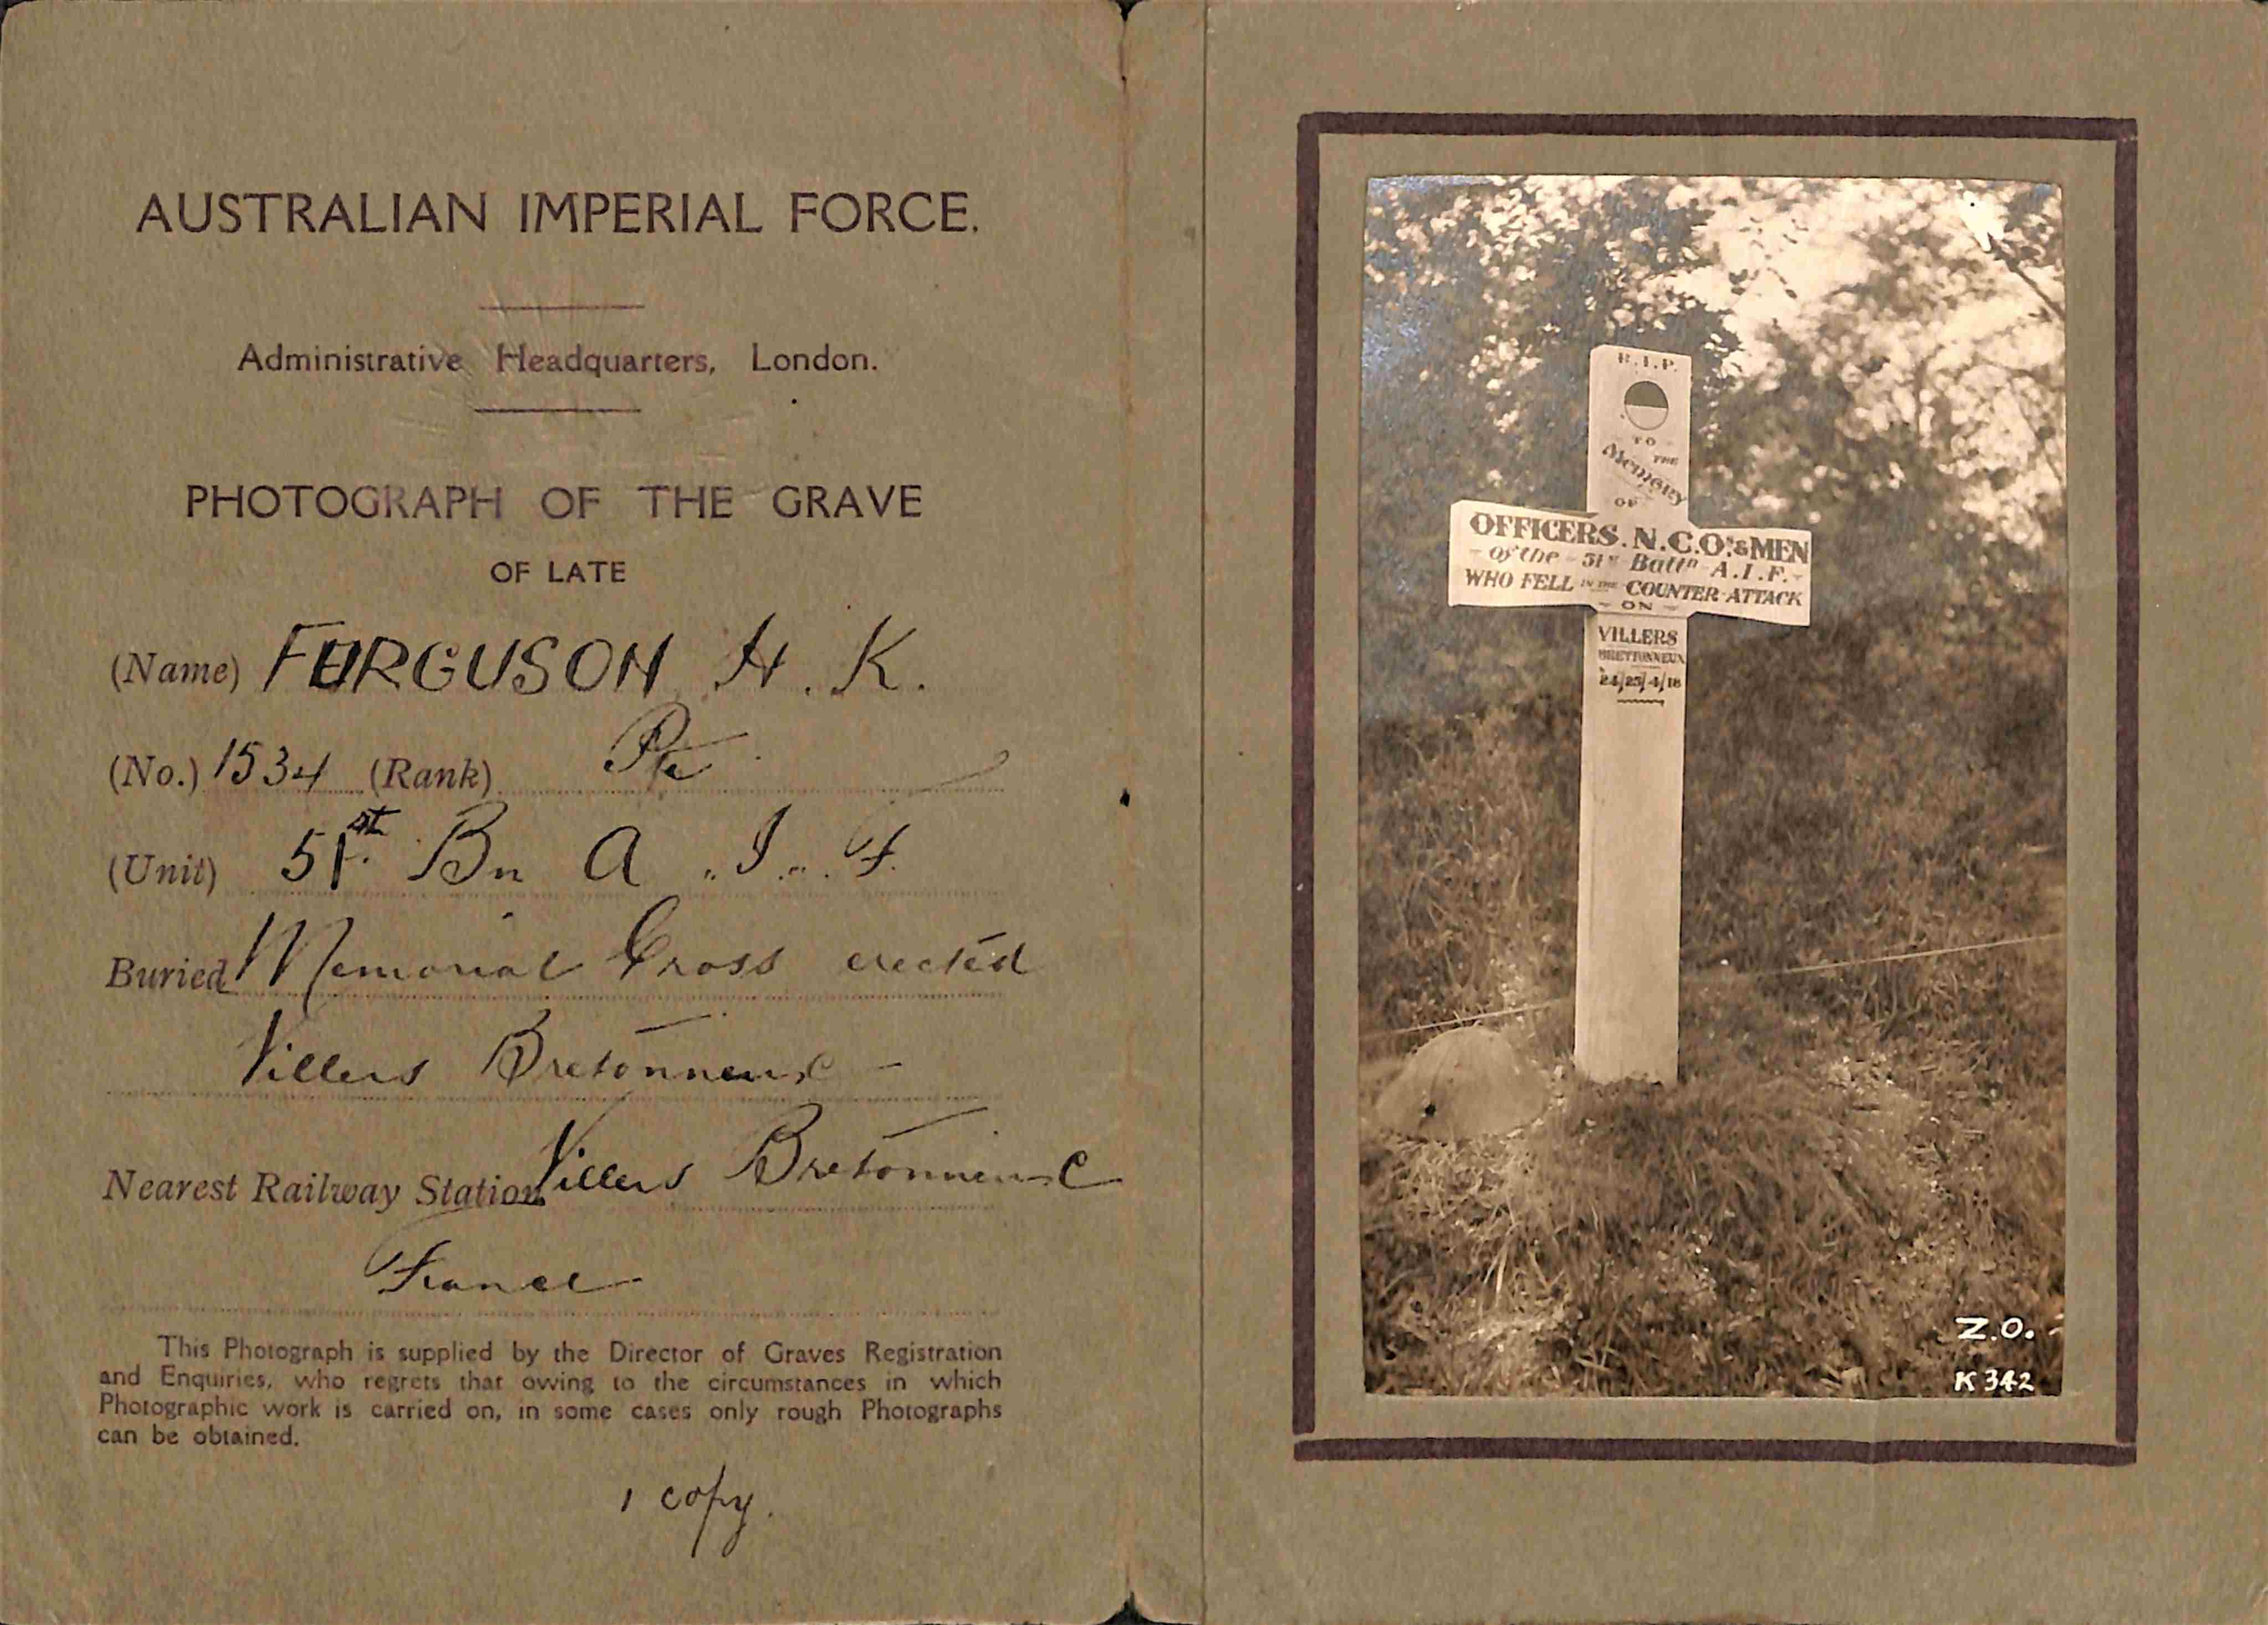 AUSTRALIAN IMPERIAL FORCE.
Administrative Headquarters, London.
PHOTOGRAPH OF THE GRAVE
OF LATE
(Name) FERGUSON H. K.
(No.) 1534 (Rank) Pte
(Unit) 51st Bn A.I.F.
Buried Memorial Cross erected
Villers Bretonneux
Nearest Railway Station Villers Bretonneux
France
This Photograph is supplied by the Director of Graves Registration
and Enquiries, who regrets that owing to the circumstances in which
Photographic work is carried on, in some cases only rough Photographs
can be obtained.
1 copy.
R.I.P.
TO
THE
Memory
OF
OFFICERS. N.C.O's & MEN
of the 51st Battn A.I.F.
WHO FELL IN THE COUNTER-ATTACK
ON
VILLERS
BRETTONNEUX
24/25/4/18
Z.O.
K 342